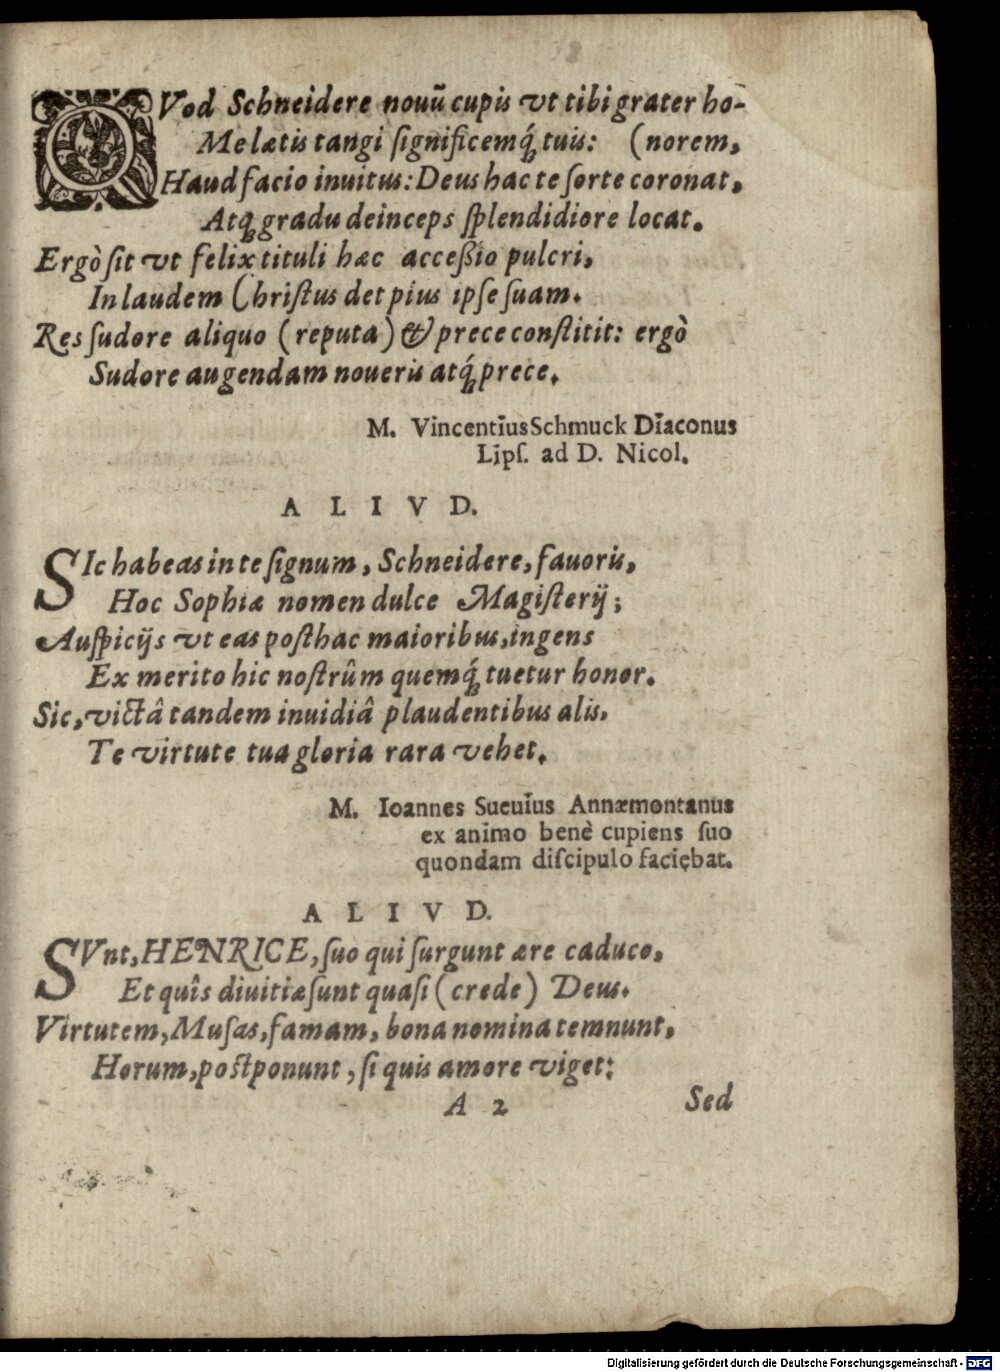 QVod Schneidere nouũ cupis vt tibi grater ho-
Me lætis tangi ſignificemq́; tuis: (norem,
Haud facio inuitus: Deus hac te ſorte coronat,
Atq; gradu deinceps ſplendidiore locat.
Ergò ſit vt felix tituli hæc acceßio pulcri,
In laudem Chriſtus det pius ipſe ſuam.
Res ſudore aliquo (reputa) & prece conſtitit: ergò
Sudore augendam noueris atq́; prece.
M. Vincentius Schmuck Diaconus
Lipſ. ad D. Nicol.
A L I V D.
SIc habeas in te ſignum, Schneidere, fauoris,
Hoc Sophiæ nomen dulce Magiſterij;
Auſpicijs vt eas poſthac maioribus, ingens
Ex merito hic noſtrûm quemq́; tuetur honor.
Sic, victâ tandem inuidiâ plaudentibus alis,
Te virtute tua gloria rara vehet.
M. Ioannes Sueuius Annæmontanus
ex animo benè cupiens ſuo
quondam diſcipulo faciębat.
A L I V D.
SVnt, HENRICE, ſuo qui ſurgunt ære caduco,
Et quîs diuitiæ ſunt quaſi (crede) Deus.
Virtutem, Muſas, famam, bona nomina temnunt,
Horum, poſtponunt, ſi quis amore viget:
A 2 Sed
Digitalisierung gefördert durch die Deutsche Forschungsgemeinschaft - DFG